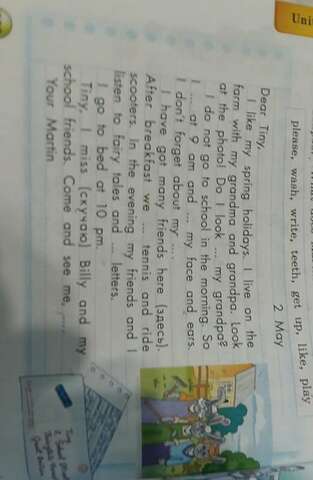 Uni
please, wash, write, teeth, get up, like, play
2 May
Dear Tiny,
I like my spring holidays. I live on the
farm with my grandma and grandpa. Look
at the photo! Do I look ... my grandpa?
I do not go to school in the morning. So
I ... at 9 am and ... my face and ears.
I don't forget about my ... .
I have got many friends here (здесь).
After breakfast we ... tennis and ride
scooters. In the evening my friends and I
listen to fairy tales and ... letters.
I go to bed at 10 pm.
Tiny, I miss (скучаю) Billy and my
school friends. Come and see me, ... .
Your Martin